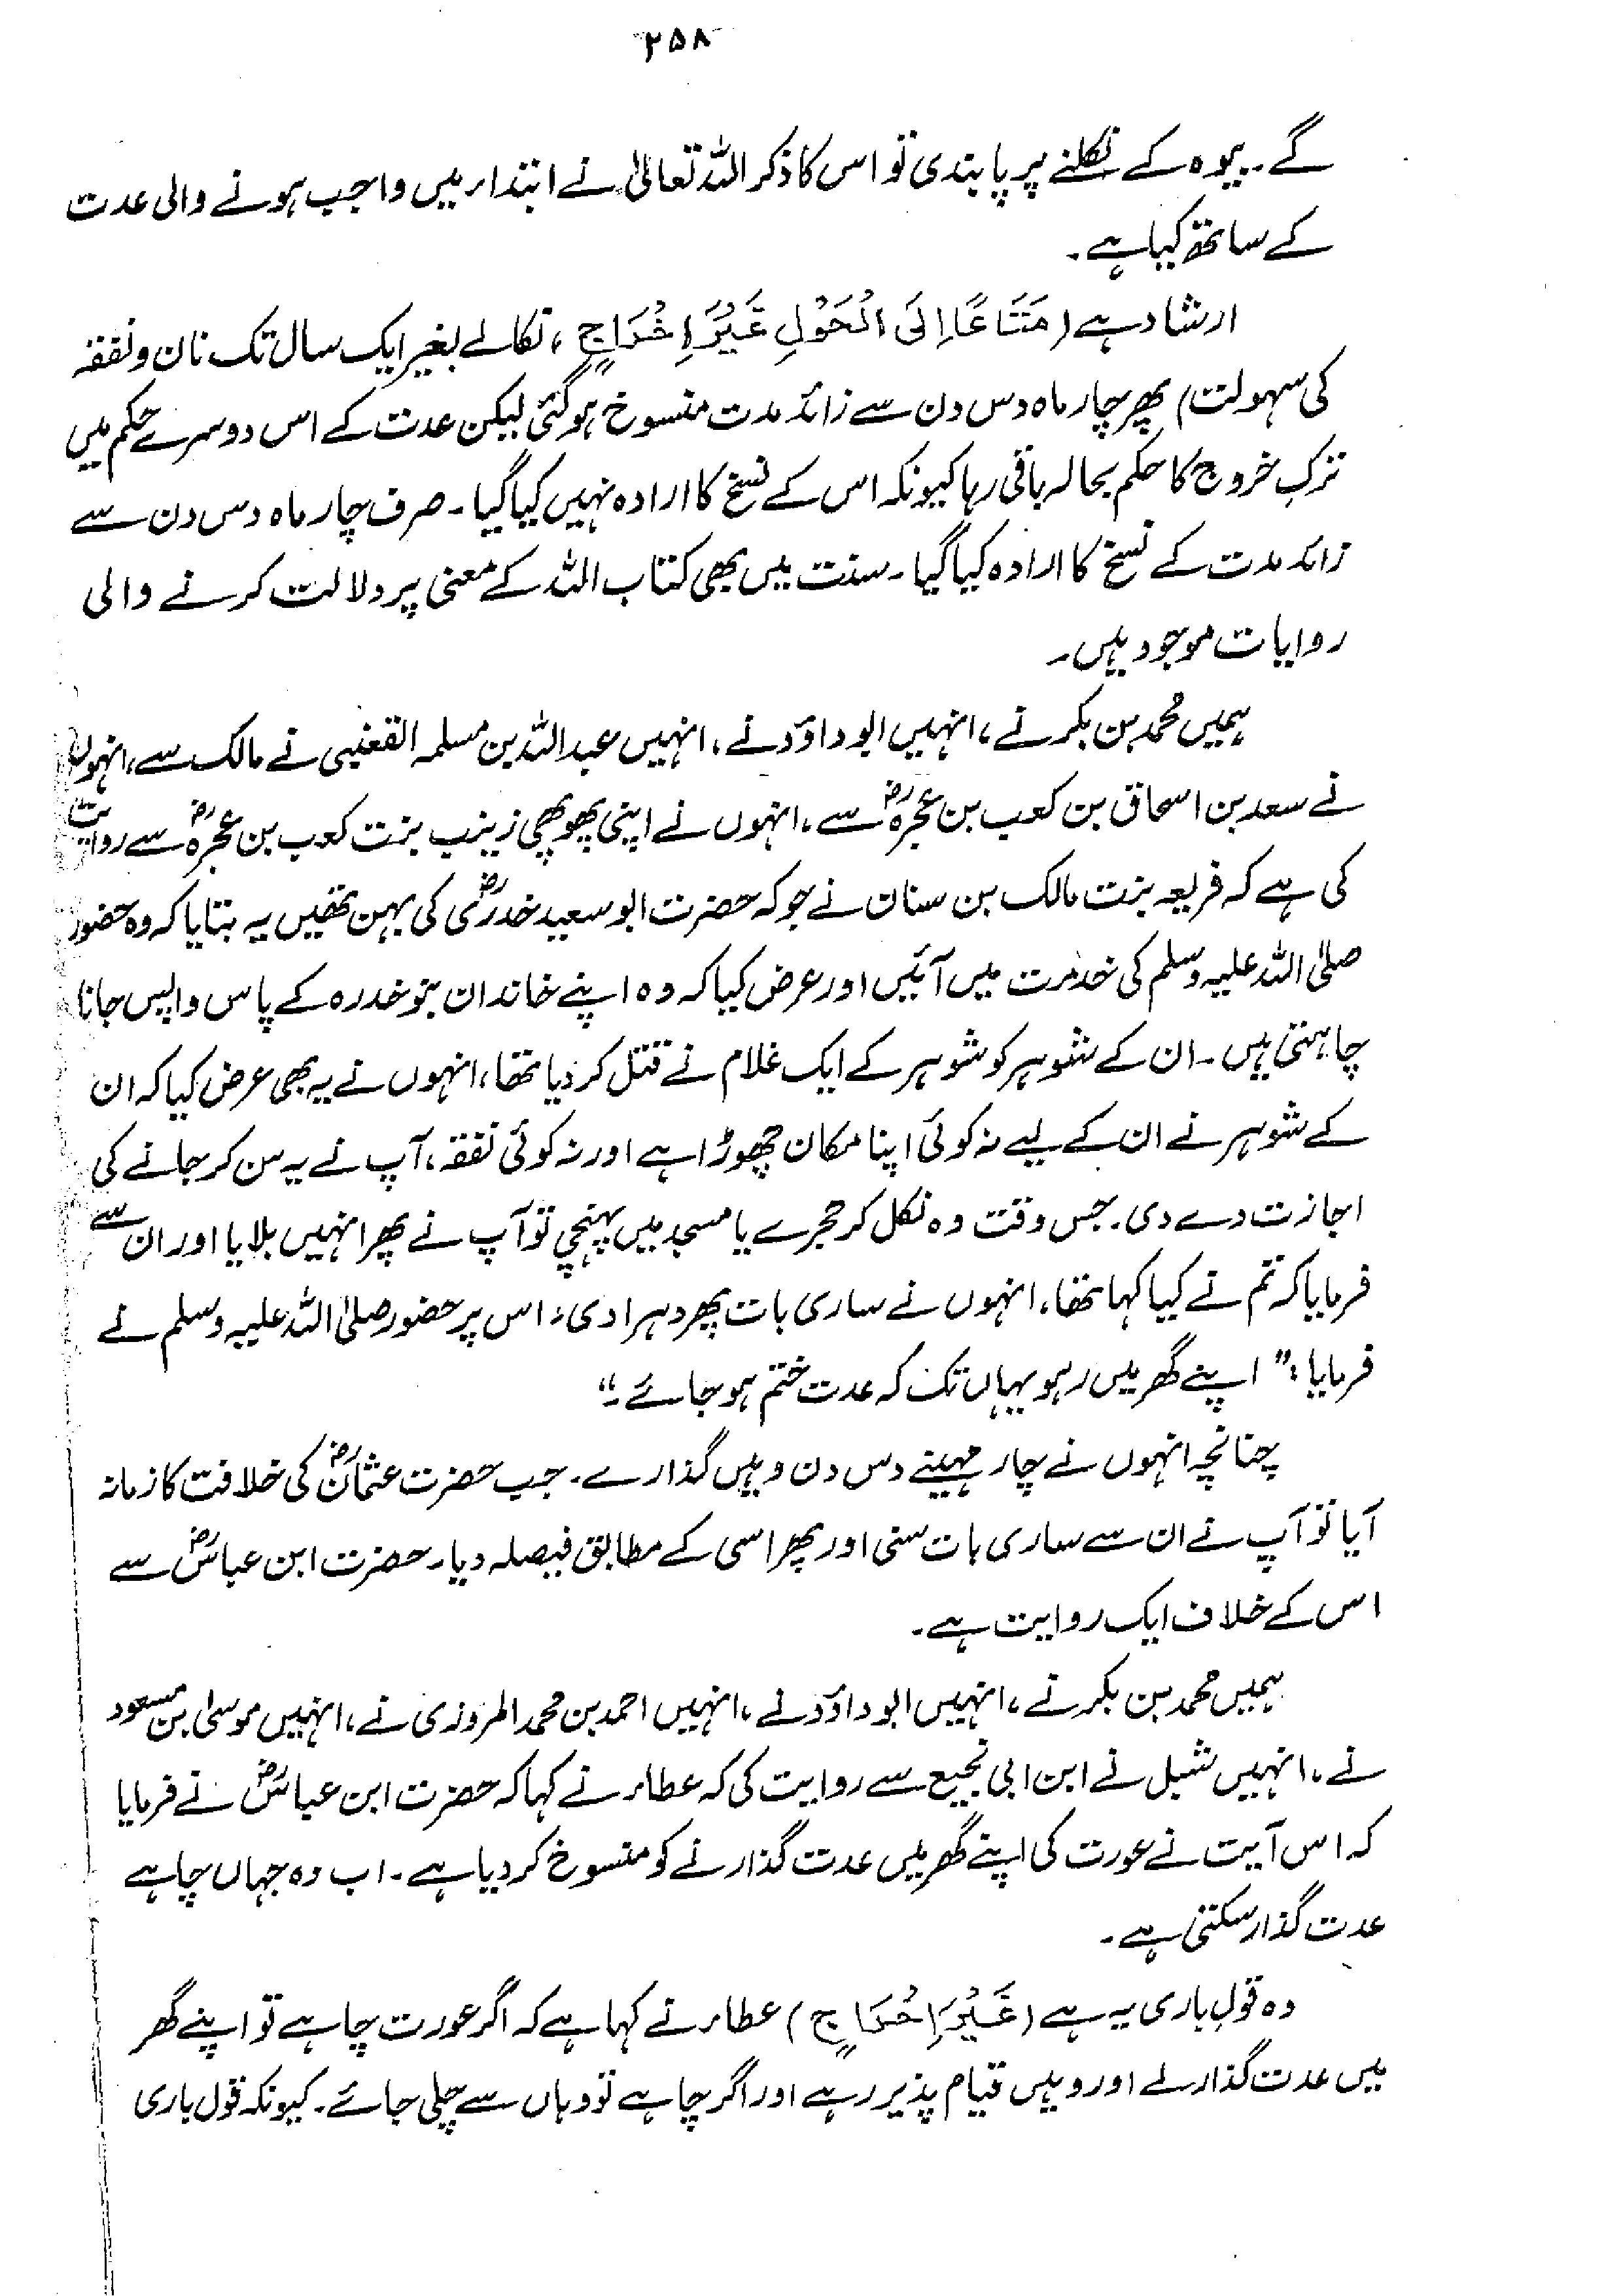 ۲۵۸
گے۔ بیوہ کے نکلنے پر پابندی تو اس کا ذکر اللہ تعالیٰ نے ابتداء میں واجب ہونے والی عدت
کے ساتھ کیا ہے۔
ارشاد ہے (مَتَاعًا اِلَى الْحَوْلِ غَيْرَ اِخْرَاجٍ، نکالے بغیر ایک سال تک نان و نفقہ
کی سہولت) پھر چار ماہ دس دن سے زائد مدت منسوخ ہوگئی لیکن عدت کے اس دوسرے حکم میں
ترک خروج کا حکم بحالہ باقی رہا کیونکہ اس کے نسخ کا ارادہ نہیں کیا گیا۔ صرف چار ماہ دس دن سے
زائد مدت کے نسخ کا ارادہ کیا گیا۔ سنت میں بھی کتاب اللہ کے معنی پر دلالت کرنے والی
روایات موجود ہیں۔
ہمیں محمد بن بکر نے، انہیں ابوداؤد نے، انہیں عبداللہ بن مسلمہ القعنبی نے مالک سے، انہوں
نے سعد بن اسحاق بن کعب بن عجرہؓ سے، انہوں نے اپنی پھوپھی زینب بنت کعب بن عجرہؓ سے روایت
کی ہے کہ فریعہ بنت مالک بن سنان نے جو کہ حضرت ابوسعید خدریؓ کی بہن تھیں یہ بتایا کہ وہ حضور
صلی اللہ علیہ وسلم کی خدمت میں آئیں اور عرض کیا کہ وہ اپنے خاندان بنو خدرہ کے پاس واپس جانا
چاہتی ہیں۔ ان کے شوہر کو شوہر کے ایک غلام نے قتل کر دیا تھا، انہوں نے یہ بھی عرض کیا کہ ان
کے شوہر نے ان کے لیے نہ کوئی اپنا مکان چھوڑا ہے اور نہ کوئی نفقہ، آپ نے یہ سن کر جانے کی
اجازت دے دی۔ جس وقت وہ نکل کر حجرے یا مسجد میں پہنچی تو آپ نے پھر انہیں بلایا اور ان سے
فرمایا کہ تم نے کیا کہا تھا، انہوں نے ساری بات پھر دہرا دی، اس پر حضور صلی اللہ علیہ وسلم نے
فرمایا: "اپنے گھر میں رہو یہاں تک کہ عدت ختم ہو جائے۔"
چنانچہ انہوں نے چار مہینے دس دن وہیں گذارے۔ جب حضرت عثمانؓ کی خلافت کا زمانہ
آیا تو آپ نے ان سے ساری بات سنی اور پھر اسی کے مطابق فیصلہ دیا۔ حضرت ابن عباسؓ سے
اس کے خلاف ایک روایت ہے۔
ہمیں محمد بن بکر نے، انہیں ابوداؤد نے، انہیں احمد بن محمد المروزی نے، انہیں موسیٰ بن مسعود
نے، انہیں شبل نے ابن ابی نجیع سے روایت کی کہ عطاء نے کہا کہ حضرت ابن عباسؓ نے فرمایا
کہ اس آیت نے عورت کی اپنے گھر میں عدت گذارنے کو منسوخ کر دیا ہے۔ اب وہ جہاں چاہے
عدت گذار سکتی ہے۔
وہ قول باری یہ ہے (غَيْرَ اِخْرَاجٍ) عطاء نے کہا ہے کہ اگر عورت چاہے تو اپنے گھر
میں عدت گذار لے اور وہیں قیام پذیر رہے اور اگر چاہے تو وہاں سے چلی جائے۔ کیونکہ قول باری